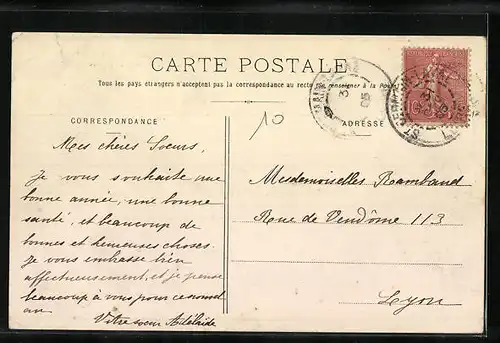 CARTE POSTALE
Tous les pays étrangers n'acceptent pas la correspondance au recto, se renseigner à la Poste
CORRESPONDANCE
ADRESSE
10
Mes chères Soeurs,
Je vous souhaite une
bonne année, une bonne
santé, et beaucoup de
bonnes et heureuses choses.
Je vous embrasse bien
affectueusement, et je pense
beaucoup à vous pour ce nouvel
an.
Votre soeur Adélaïde
Mesdemoiselles Rambaud
Rue de Vendôme 113
Lyon